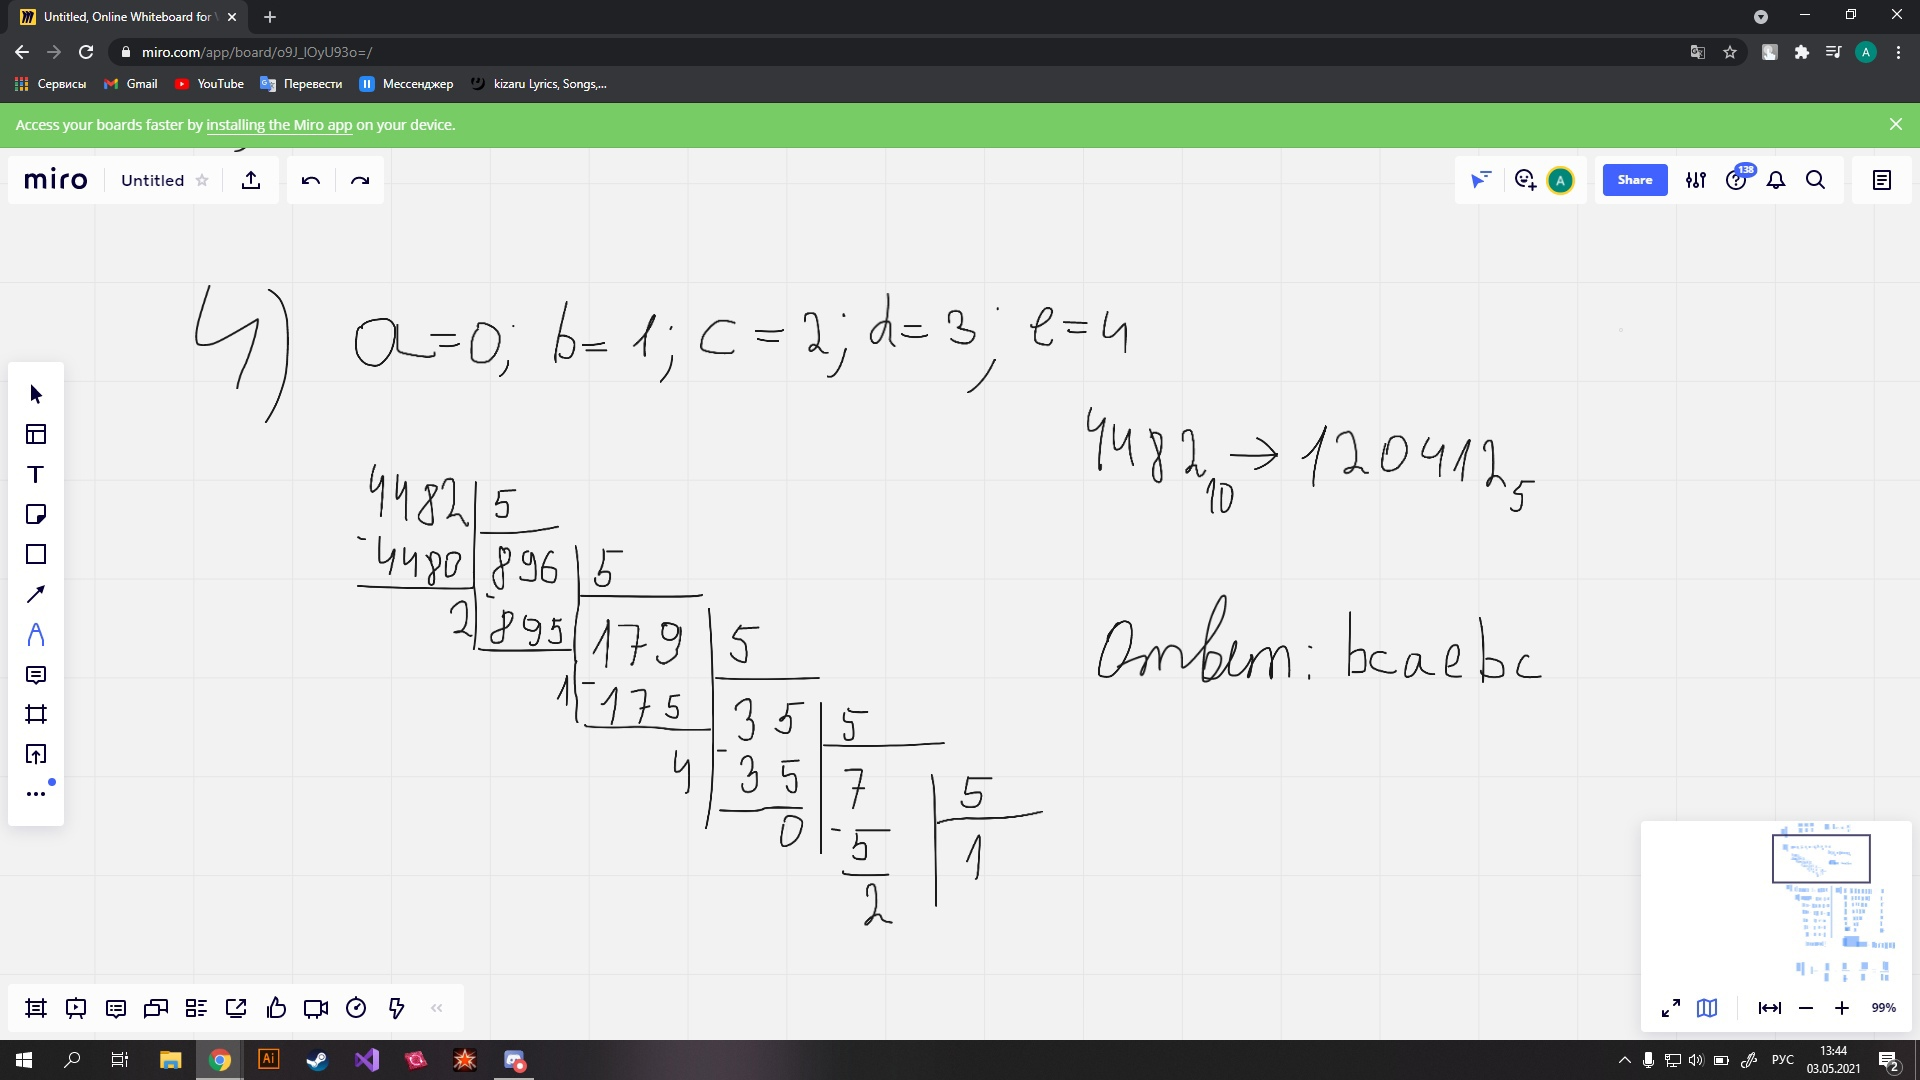 Untitled, Online Whiteboard for
miro.com/app/board/o9J_lOyU93o=/
A
Сервисы Gmail YouTube Перевести Мессенджер kizaru Lyrics, Songs,...
Access your boards faster by installing the Miro app on your device.
miro Untitled A Share 138
4) a=0; b=1; c=2; d=3; e=4
4482₁₀ → 120412₅
4482 5
-4480 896 5
2 -895 179 5
1 -175 35 5
4 -35 7 5
0 -5 1
2
Ответ: bcaebc
T
99%
Ai
РУС 13:44
03.05.2021 2